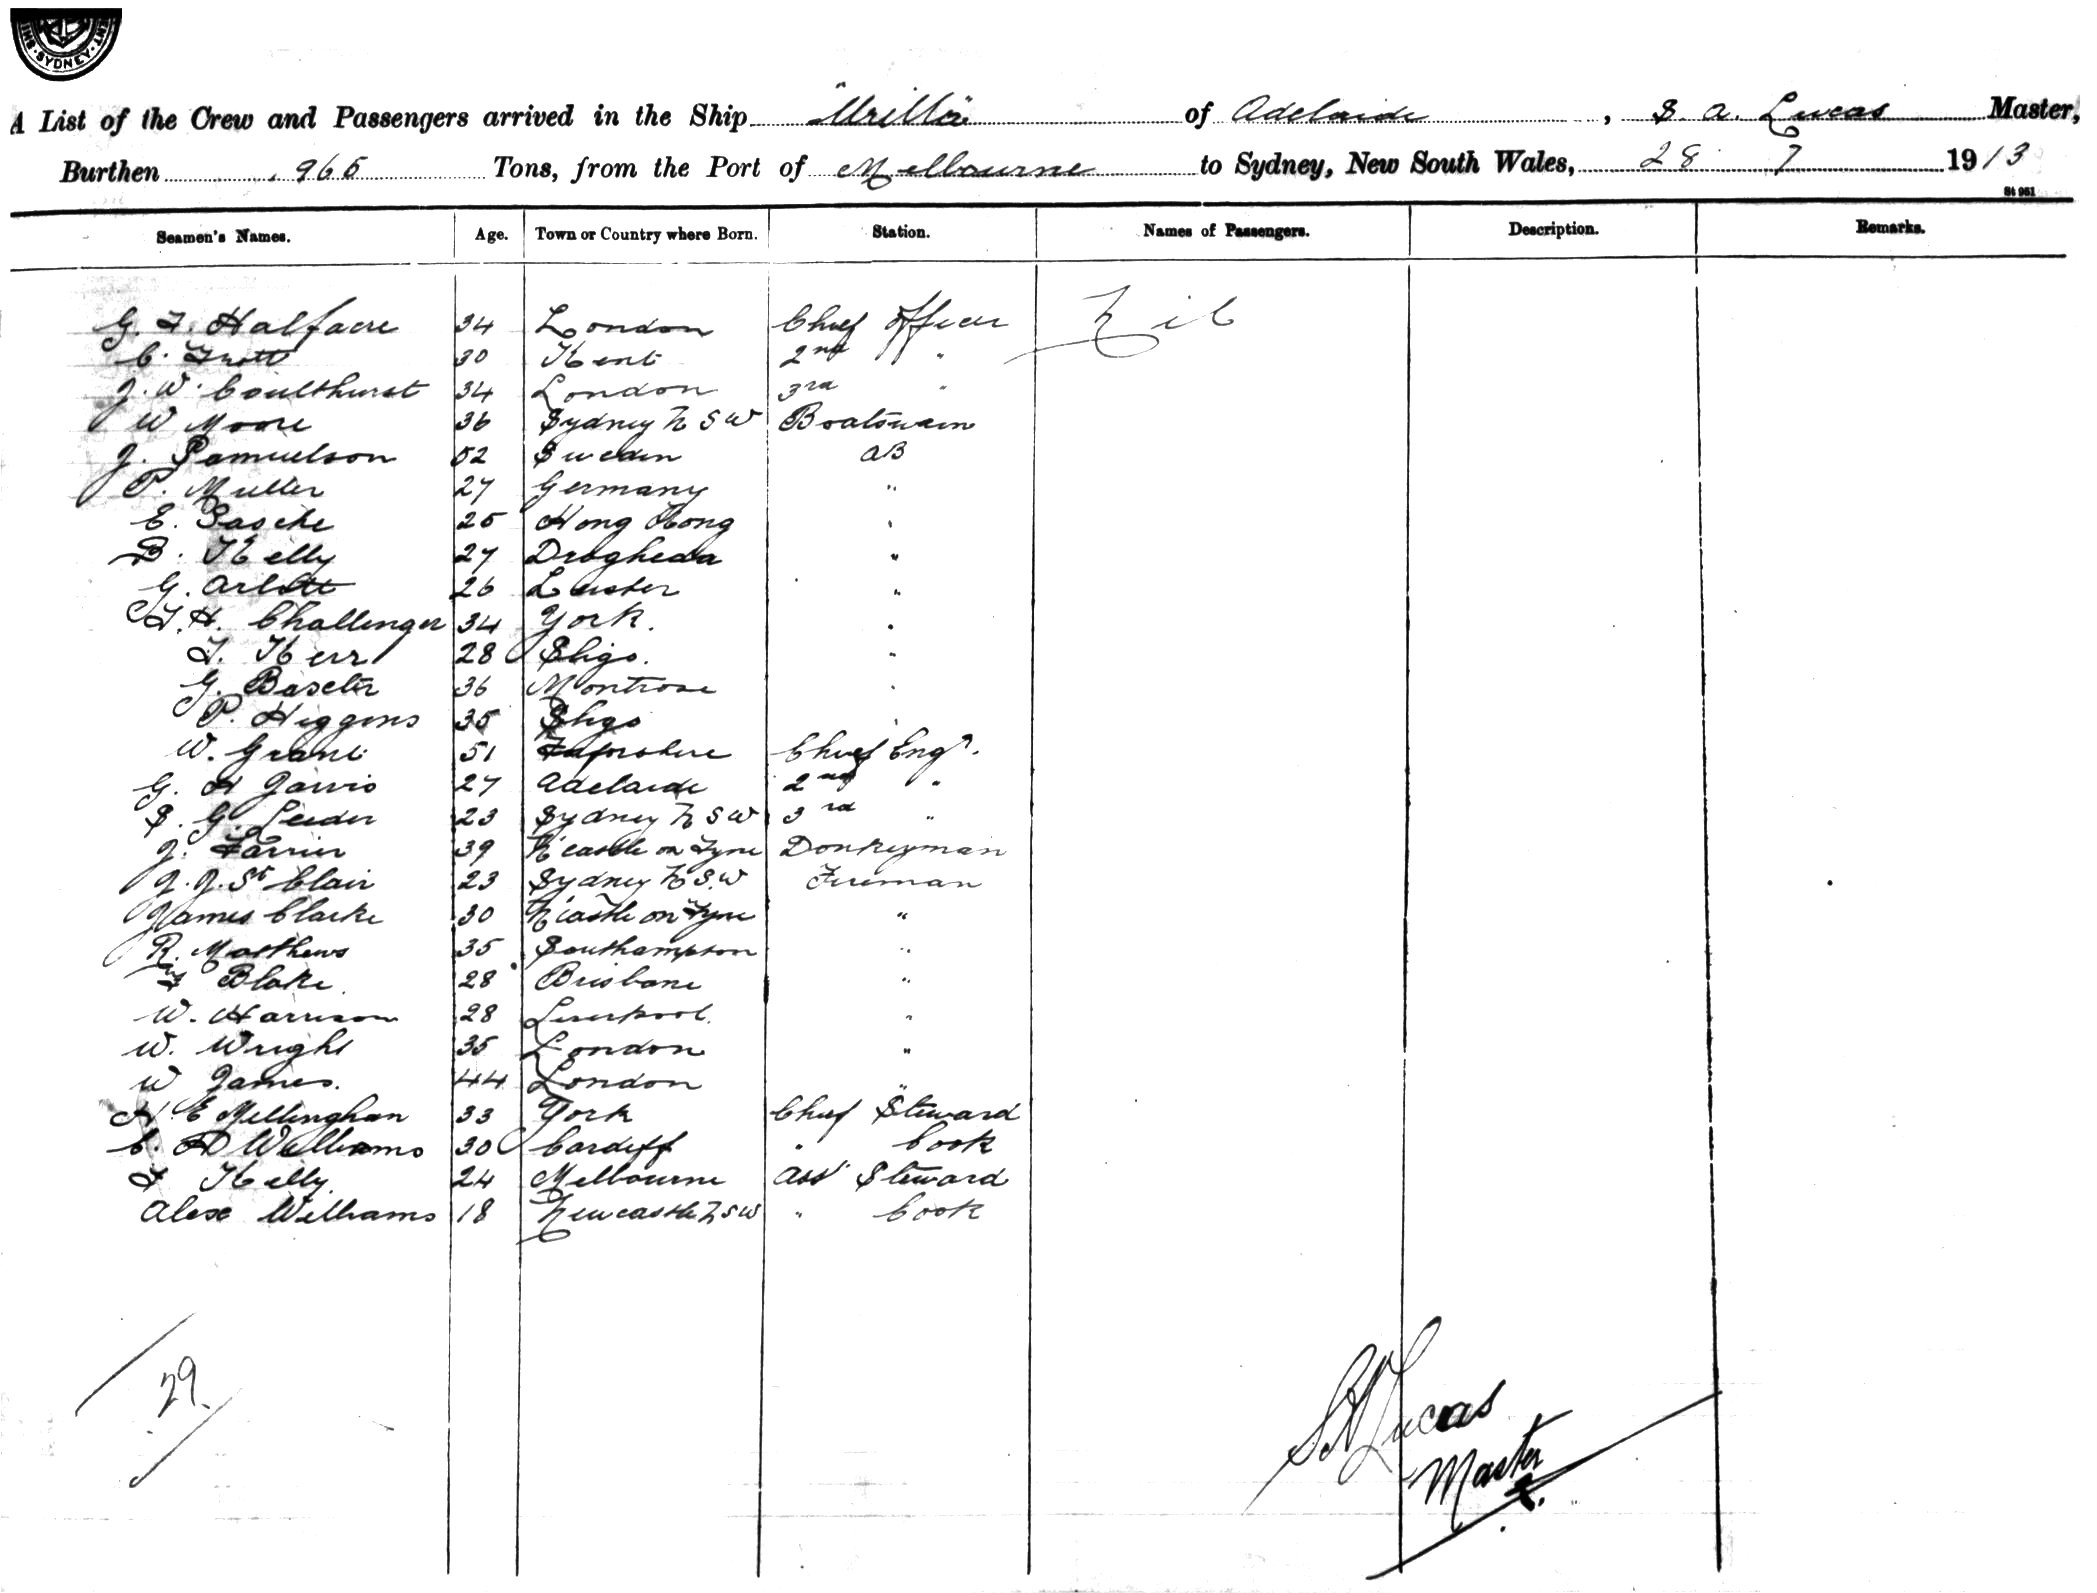 SYDNEY
A List of the Crew and Passengers arrived in the Ship "Urilla" of Adelaide, S. A. Lucas Master,
Burthen 965 Tons, from the Port of Melbourne to Sydney, New South Wales, 28 7 1913
St 981
Seamen's Names. Age. Town or Country where Born. Station. Names of Passengers. Description. Remarks.
G. F. Halfacre 34 London Chief Officer Nil
C. Trott 30 Kent 2nd "
J. W. Coulthurst 34 London 3rd "
W Moore 36 Sydney N S W Boatswain
J. Samuelson 52 Sweden AB
P. Muller 27 Germany "
E. Pasche 25 Hong Kong "
B. Kelly 27 Drogheda "
G. Arlott 26 Leister "
T. H. Challenger 34 York. "
T. Kerr 28 Sligo. "
G. Baxter 36 Montrose "
P. Higgens 35 Sligo "
W. Grant 51 Chief Engr.
G. H Jarvis 27 Adelaide 2nd "
S. G. Leeder 23 Sydney N S W 3rd "
J. Farrier 39 N'castle on Tyne Donkeyman
J. J. St Clair 23 Sydney N S. W Fireman
James Clarke 30 N'castle on Tyne "
R. Matthews 35 Southampton "
Blake. 28 Brisbane "
W. Harrison 28 Liverpool. "
W. Wright 35 London "
W James. 44 London "
H. E Mellinghan 33 York Chief Steward
C. A Williams 30 Cardiff " Cook
F Kelly. 24 Melbourne Asst Steward
Alex Williams 18 Newcastle N S W " Cook
29.
S A Lucas
Master